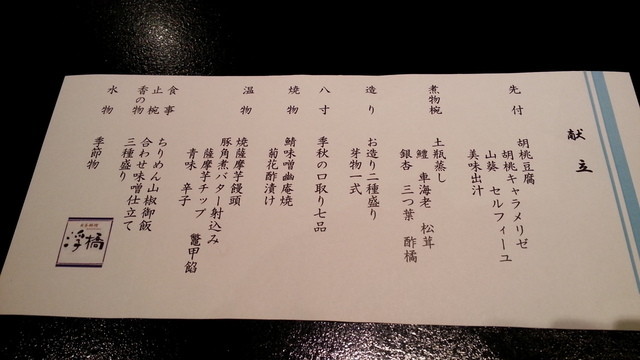 献立
先付
胡桃豆腐
胡桃キャラメリゼ
山葵 セルフィーユ
美味出汁
煮物椀
土瓶蒸し
鱧 車海老 松茸
銀杏 三つ葉 酢橘
造り
お造り二種盛り
芽物一式
八寸
季秋の口取り七品
焼物
鯖味噌幽庵焼
菊花酢漬け
温物
焼薩摩芋饅頭
豚角煮バター射込み
薩摩芋チップ 鼈甲餡
青味 辛子
食事
ちりめん山椒御飯
止椀
合わせ味噌仕立て
香の物
三種盛り
水物
季節物
浮橋